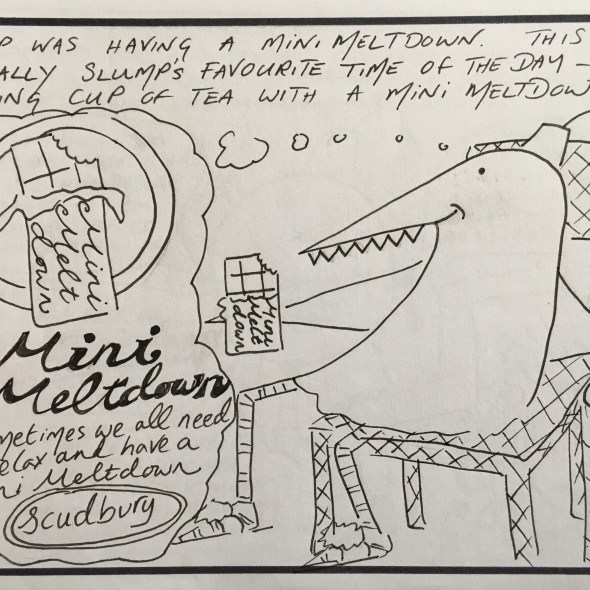 P WAS HAVING A MINI MELTDOWN. THIS
ALLY SLUMP'S FAVOURITE TIME OF THE DAY –
ING CUP OF TEA WITH A MINI MELTDOW
Mini
Melt
down
Mini
Meltdown
metimes we all need
elax and have a
ni Meltdown
Scudbury
Mini
Melt
down